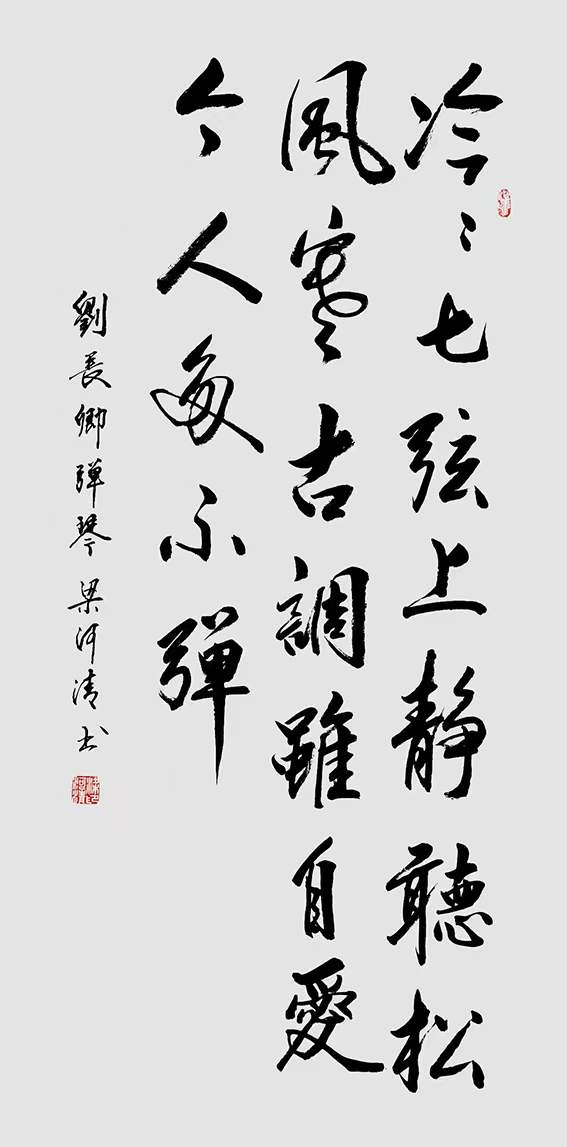 冷〻七弦上静聽松
風寒古調雖自愛
今人多不弹
劉長卿弹琴梁河清书